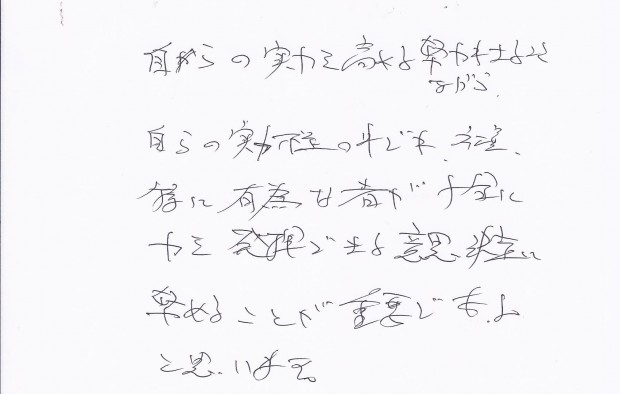 自からの実力を高める努力はもとより
ながら
自らの実力
特に有為な者が十分に
力を発揮できる意思決定に
努めることが重要である
と思います。